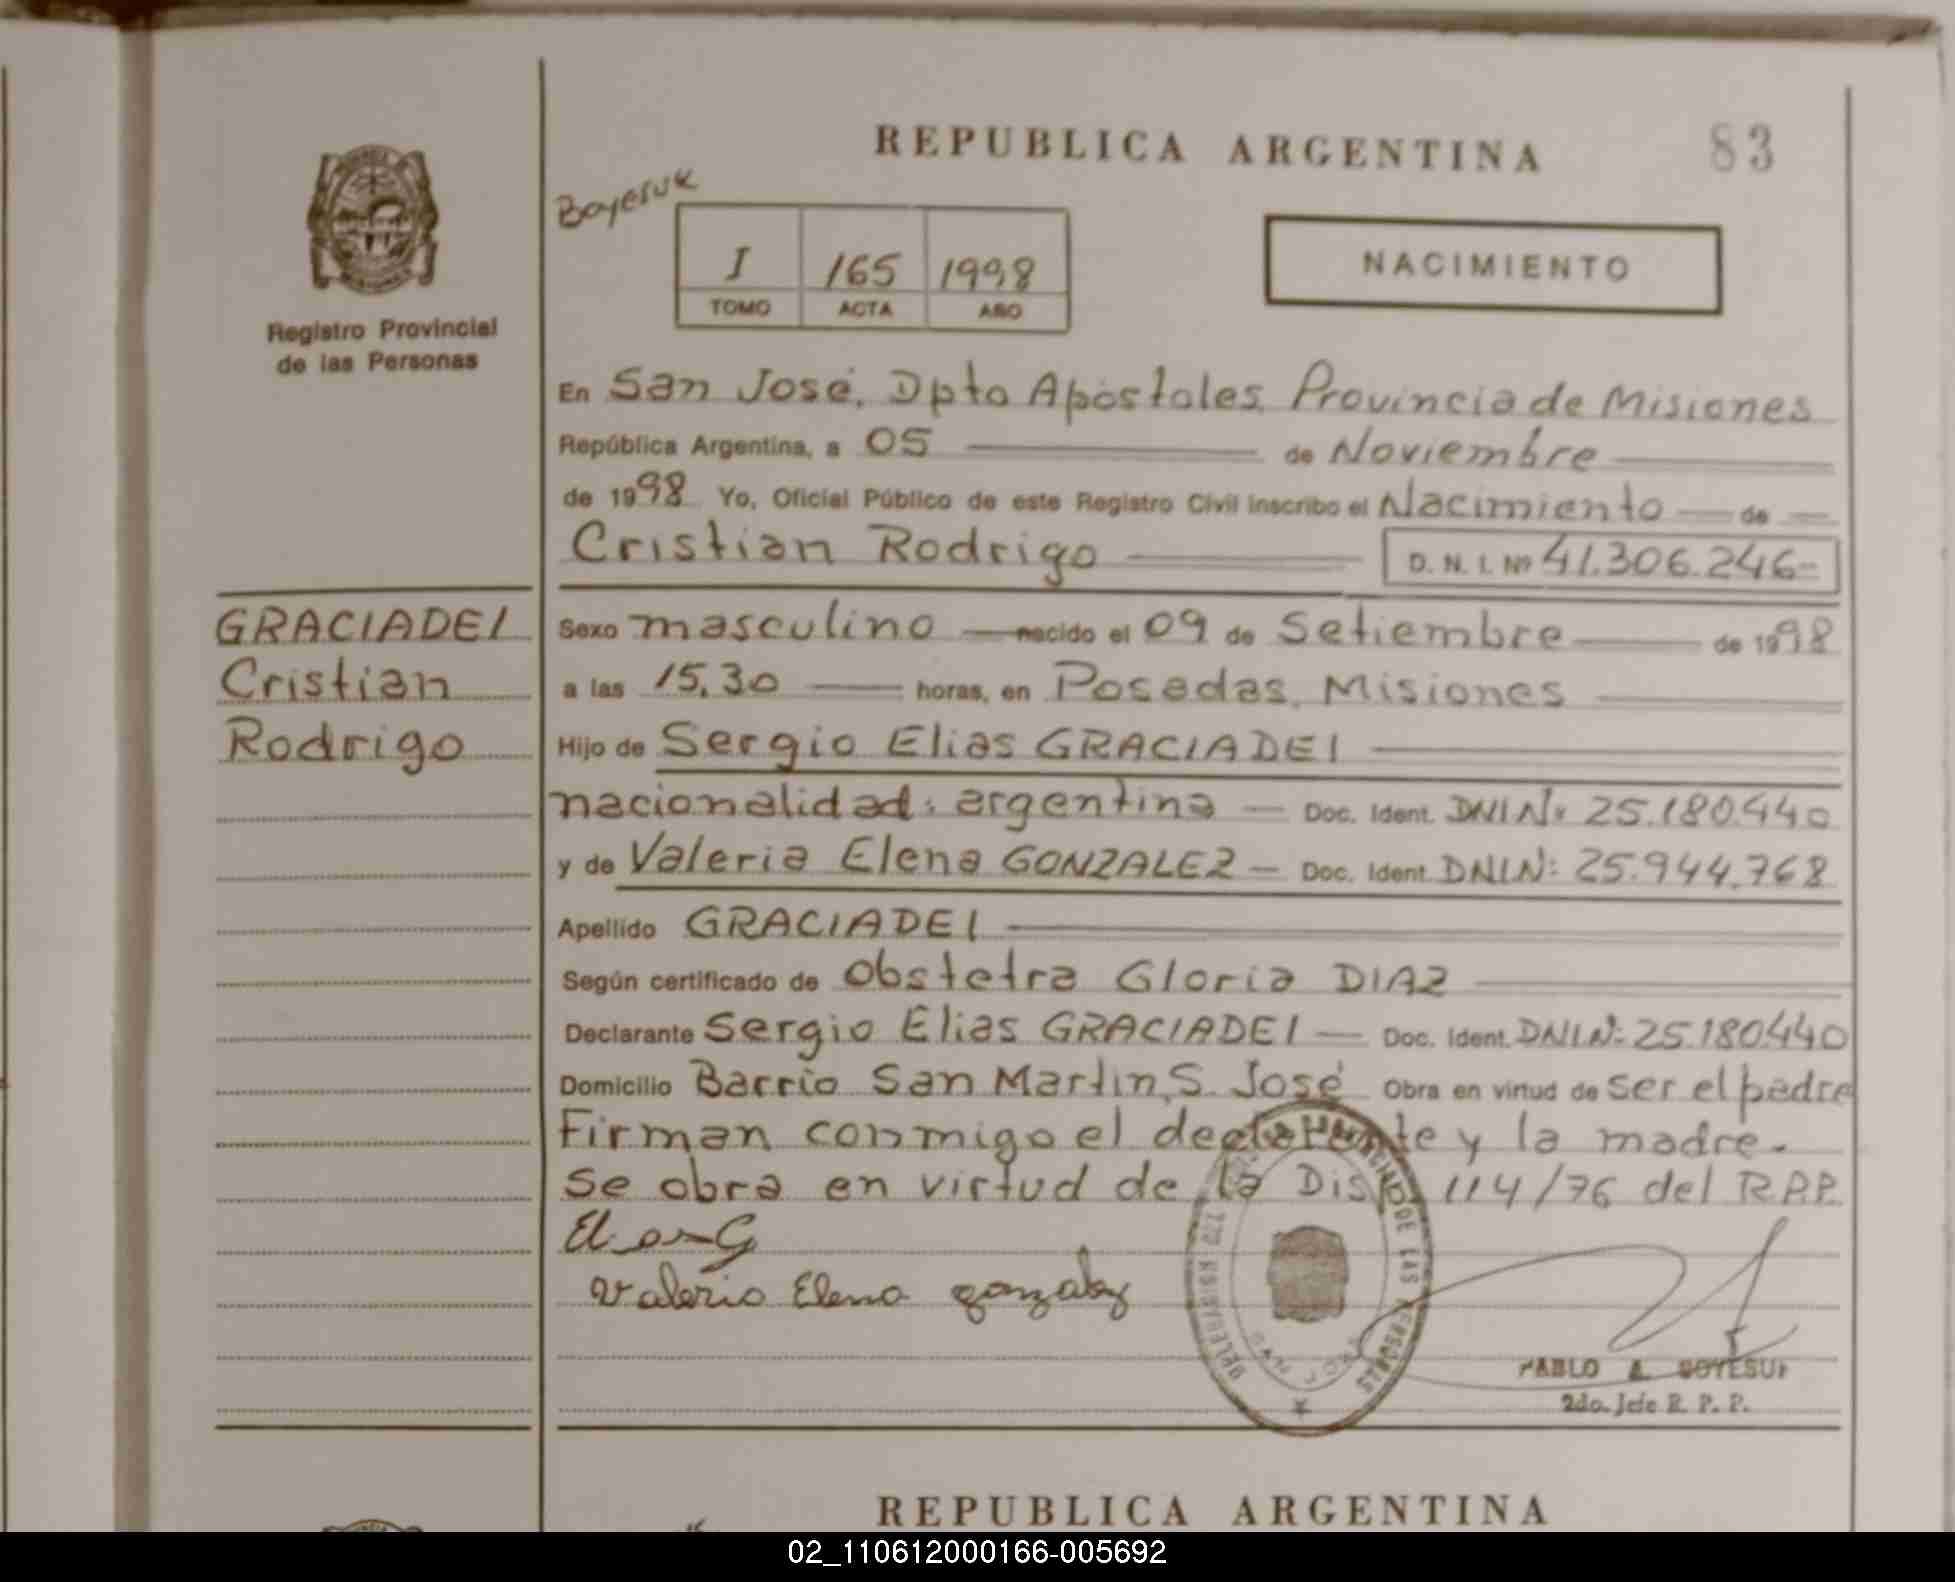 REPUBLICA ARGENTINA 83
Boyesuk
I 165 1998
TOMO ACTA AÑO
NACIMIENTO
Registro Provincial
de las Personas
En San José, Dpto Apóstoles, Provincia de Misiones
República Argentina, a 05 de Noviembre
de 1998 Yo, Oficial Público de este Registro Civil inscribo el Nacimiento de
Cristian Rodrigo D. N. I. Nº 41.306.246-
GRACIADEI
Cristian
Rodrigo
Sexo masculino nacido el 09 de Setiembre de 1998
a las 15,30 horas, en Posadas, Misiones
Hijo de Sergio Elias GRACIADEI
nacionalidad: argentina Doc. Ident. DNI Nº 25.180.440
y de Valeria Elena GONZALEZ Doc. Ident. DNI N: 25.944.768
Apellido GRACIADEI
Según certificado de Obstetra Gloria DIAZ
Declarante Sergio Elias GRACIADEI Doc. Ident. DNI N: 25.180.440
Domicilio Barrio San Martin, S. José Obra en virtud de ser el padre
Firman conmigo el declarante y la madre.
Se obra en virtud de la Disp. 114/76 del R.P.P.
Valeria Elena Gonzalez
DE LAS PERSONAS
SAN JOSE
PABLO A. BOYESUK
2do. Jefe R. P. P.
REPUBLICA ARGENTINA
02_110612000166-005692